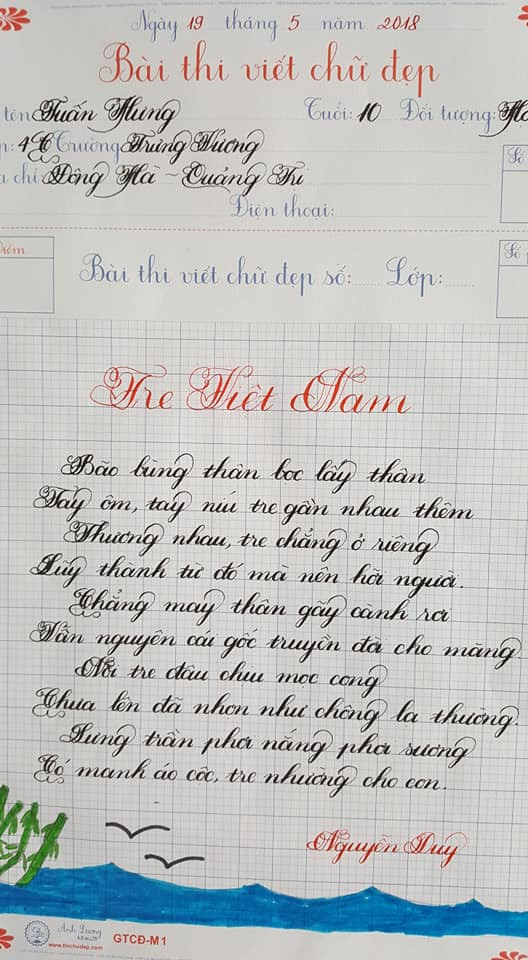 Ngày 19 tháng 5 năm 2018
Bài thi viết chữ đẹp
tên: Tuấn Hưng Tuổi: 10 Đối tượng:
: 4C Trường Trưng Vương
a chỉ: Đông Hà - Quảng Trị Số
Điện thoại:
điểm Số
Bài thi viết chữ đẹp số: Lớp:
Tre Việt Nam
Bão bùng thân bọc lấy thân
Tay ôm, tay níu tre gần nhau thêm
Thương nhau, tre chẳng ở riêng
Lũy thành từ đó mà nên hỡi người.
Chẳng may thân gãy cành rơi
Vẫn nguyên cái gốc truyền đời cho măng
Nòi tre đâu chịu mọc cong
Chưa lên đã nhọn như chông lạ thường.
Lưng trần phơi nắng phơi sương
Có manh áo cộc, tre nhường cho con.
Nguyễn Duy
Ánh Dương
www.thichudep.com GTCĐ-M1